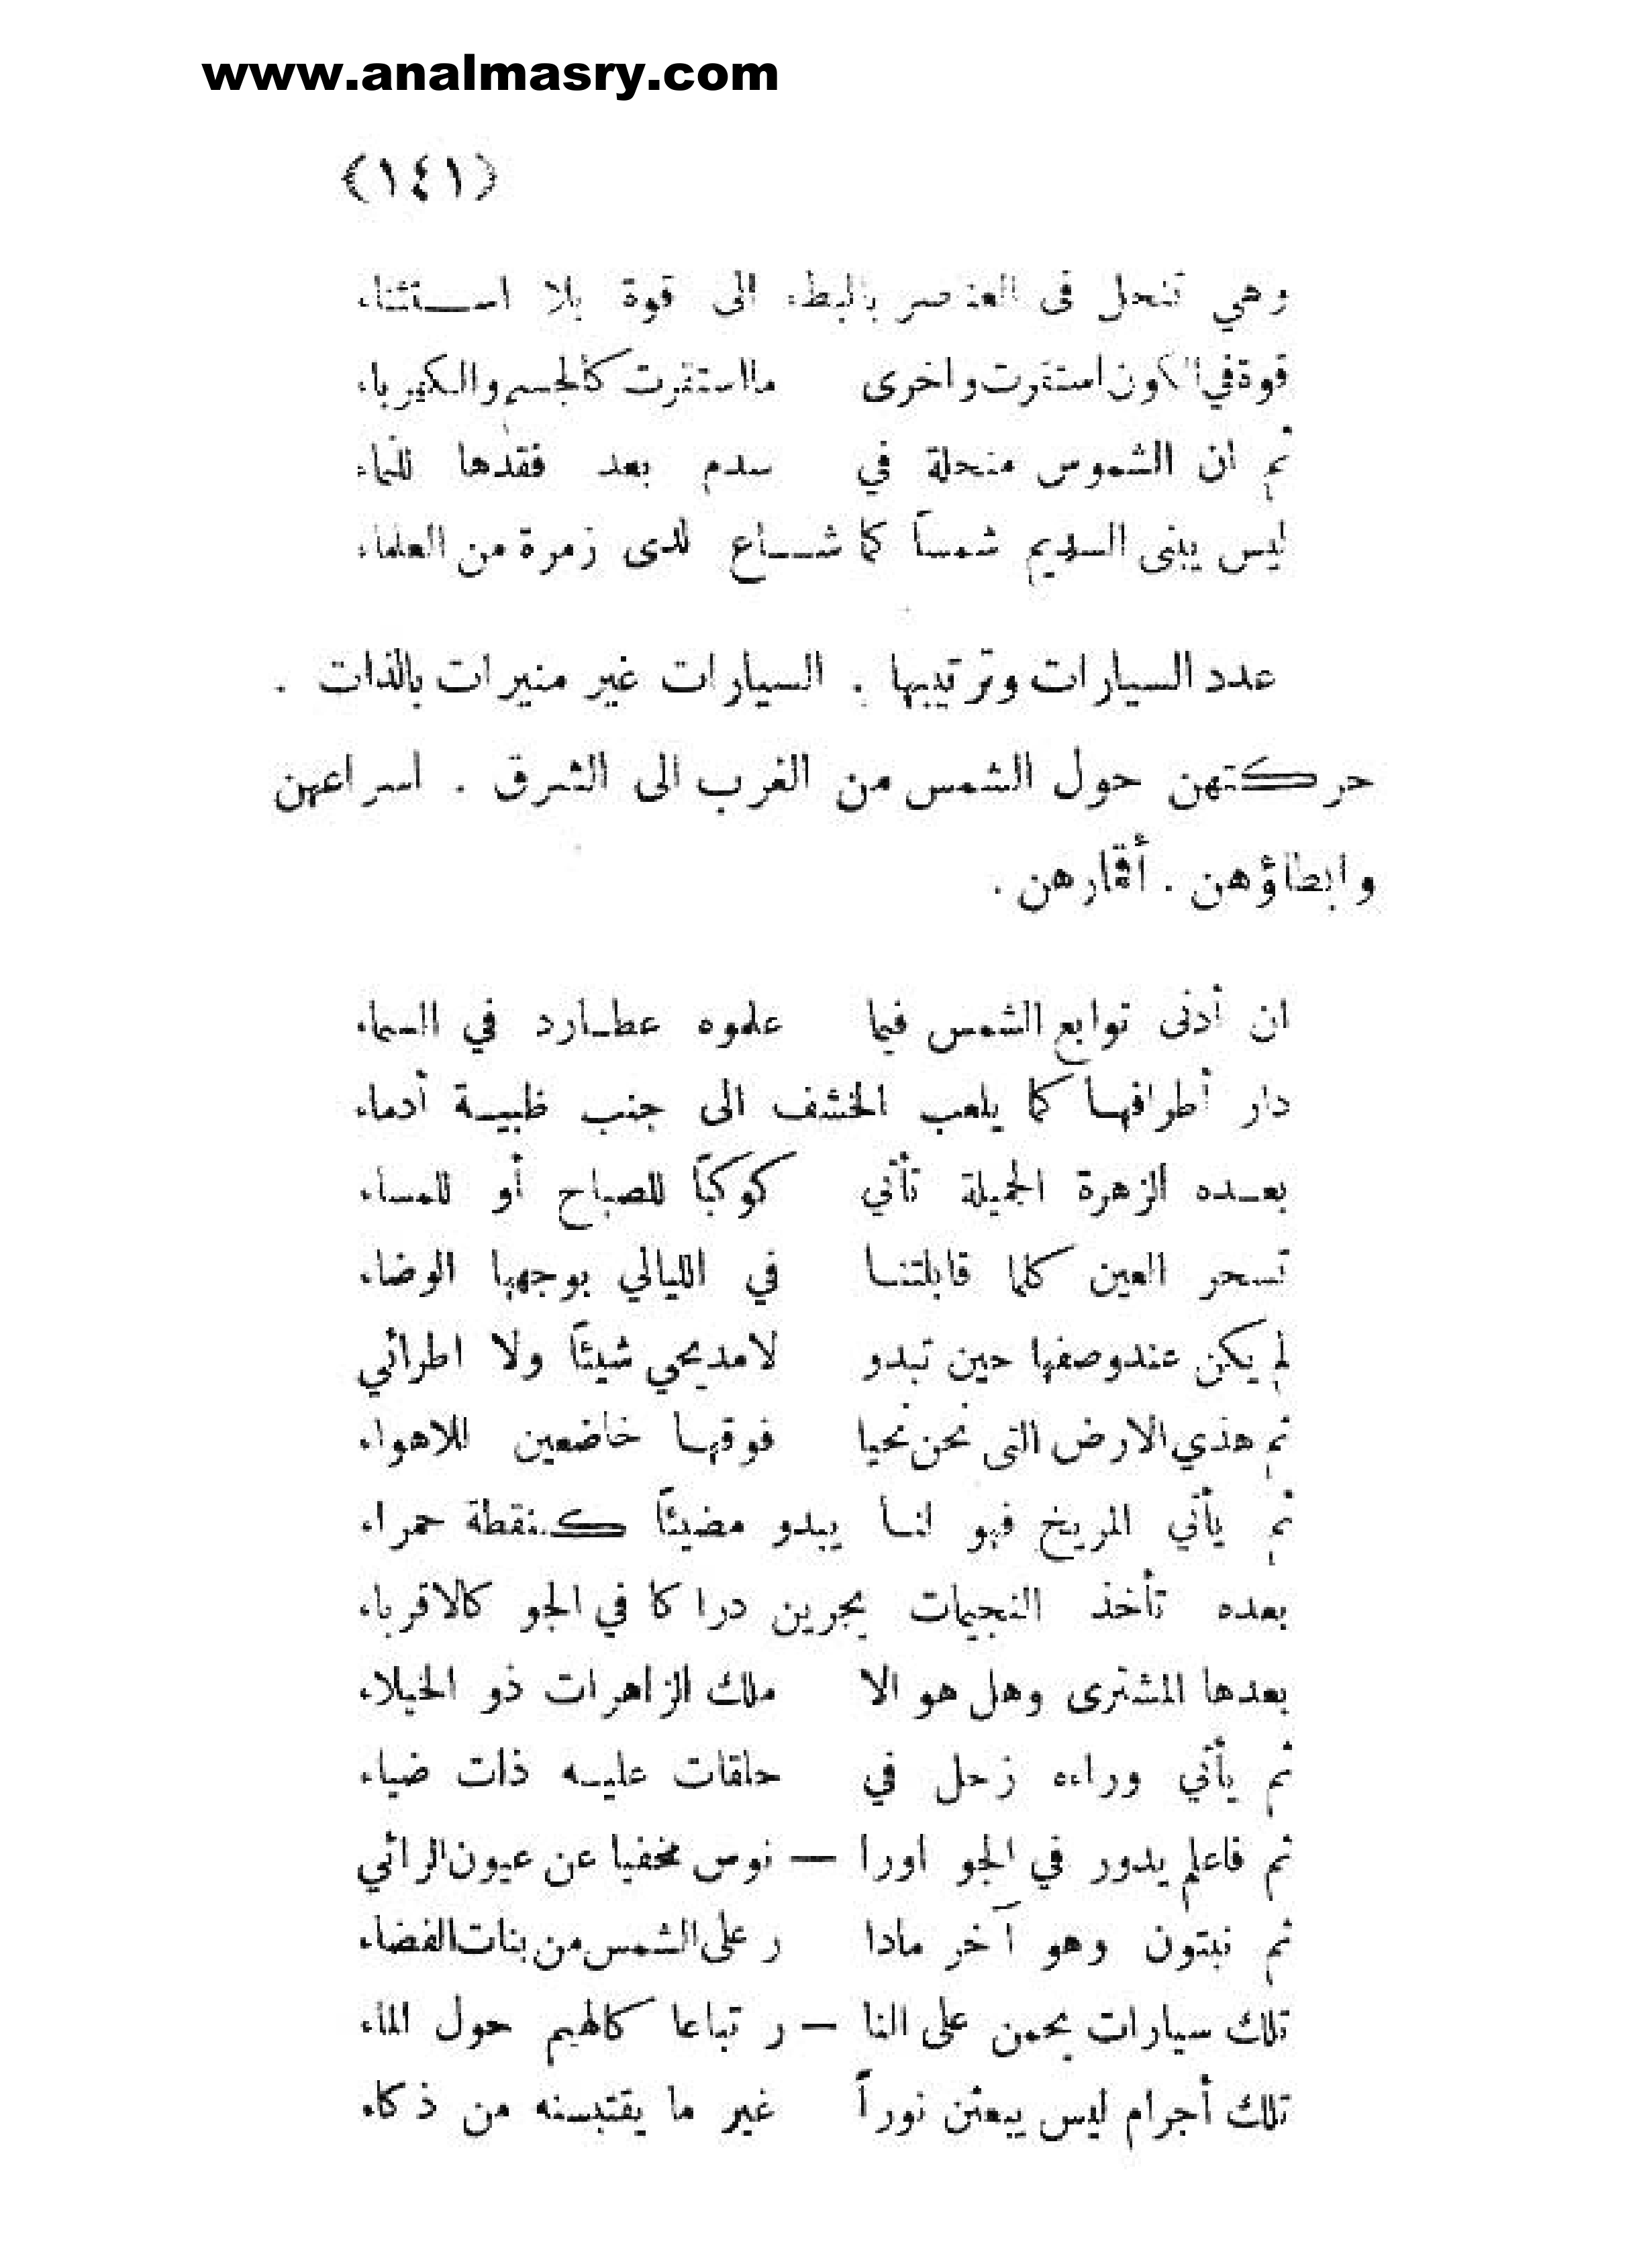 www.analmasry.com
(١٤١)
وهي تنحل فى العناصر بالبطء الى قوة بلا استثناء
قوة في الكون استقرت واخرى ما استقرت كالجسم والكهرباء
ثم ان الشموس منحلة في سدم بعد فقدها للماء
ليس يبنى السديم شمساً كما شاع لدى زمرة من العلماء
عدد السيارات وترتيبها . السيارات غير منيرات بالذات .
حركتهن حول الشمس من الغرب الى الشرق . اسراعهن
وابطاؤهن . أقمارهن .
ان أدنى توابع الشمس فيما علموه عطارد في السماء
دار أطرافها كما يلعب الخشف الى جنب ظبية أدماء
بعده الزهرة الجميلة تأتي كوكباً للصباح أو للمساء
تسحر العين كلما قابلتنا في الليالي بوجهها الوضاء
لم يكن عند وصفها حين تبدو لا مديحي شيئاً ولا اطرائي
ثم هذي الارض التى نحن نحيا فوقها خاضعين للاهواء
ثم يأتي المريخ فهو لنا يبدو مضيئاً كنقطة حمراء
بعده تأخذ النجيمات يجرين دراكا في الجو كالاقرباء
بعدها المشترى وهل هو الا ملك الزاهرات ذو الخيلاء
ثم يأتي وراءه زحل في حلقات عليه ذات ضياء
ثم فاعلم يدور في الجو اورا — نوس مخفيا عن عيون الرائي
ثم نبتون وهو آخر مادا ر على الشمس من بنات الفضاء
تلك سيارات يحمن على النا — ر تباعا كالهيم حول الماء
تلك أجرام ليس يبعثن نوراً غير ما يقتبسنه من ذكاء